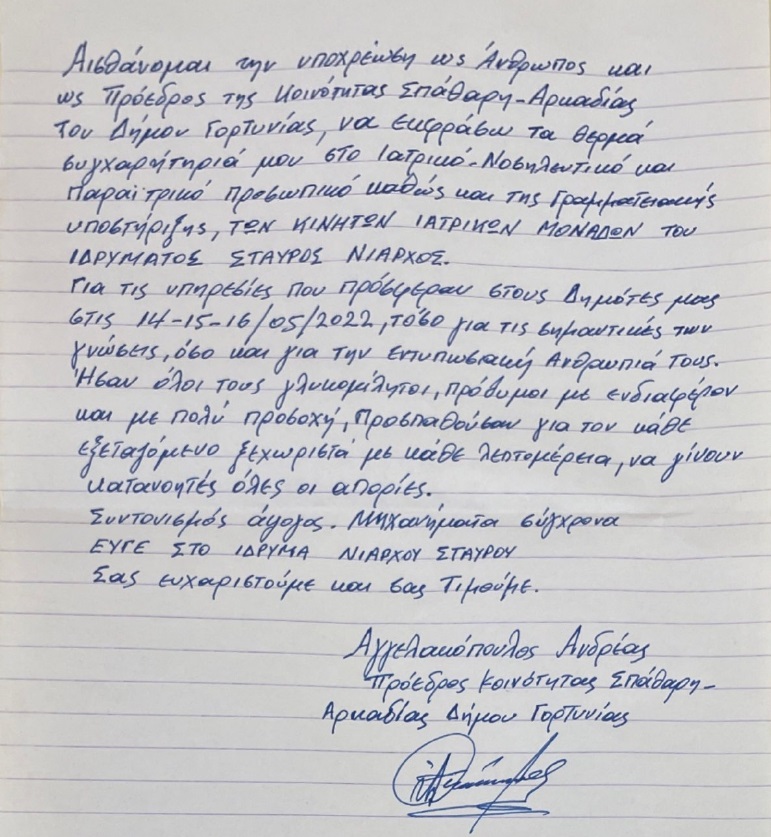 Αισθάνομαι την υποχρέωση ως Άνθρωπος και
ως Πρόεδρος της Κοινότητας Σπάθαρη-Αρκαδίας
του Δήμου Γορτυνίας, να εκφράσω τα θερμά
συγχαρητηριά μου στο Ιατρικό-Νοσηλευτικό και
Παραϊτρικό προσωπικό καθώς και της Γραμματειακής
υποστήριξης, ΤΩΝ ΚΙΝΗΤΩΝ ΙΑΤΡΙΚΩΝ ΜΟΝΑΔΩΝ του
ΙΔΡΥΜΑΤΟΣ ΣΤΑΥΡΟΣ ΝΙΑΡΧΟΣ.
Για τις υπηρεσίες που πρόσφεραν στους Δημότες μας
στις 14-15-16/05/2022, τόσο για τις σημαντικές των
γνώσεις, όσο και για την εντυπωσιακή Ανθρωπιά τους.
Ήσαν όλοι τους γλυκομίλητοι, πρόθυμοι με ενδιαφέρον
και με πολύ προσοχή, Προσπαθούσαν για τον κάθε
εξεταζόμενο ξεχωριστά με κάθε λεπτομέρεια, να γίνουν
κατανοητές όλες οι απορίες.
Συντονισμός άψογος. Μηχανήματα σύγχρονα
ΕΥΓΕ ΣΤΟ ΙΔΡΥΜΑ ΝΙΑΡΧΟΥ ΣΤΑΥΡΟΥ
Σας ευχαριστούμε και σας Τιμούμε.
Αγγελακόπουλος Ανδρέας
Πρόεδρος Κοινότητας Σπάθαρη-
Αρκαδίας Δήμου Γορτυνίας